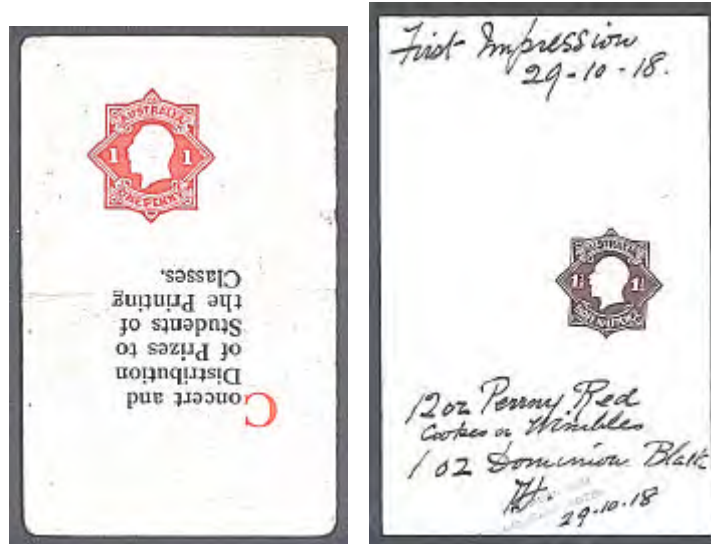 AUSTRALIA
1 1
ONE PENNY
Concert and
Distribution
of Prizes to
Students of
the Printing
Classes.
First Impression
29-10-18.
AUSTRALIA
12oz Penny Red
Cookes or Wimbles
1 oz Dominion Black
29.10.18